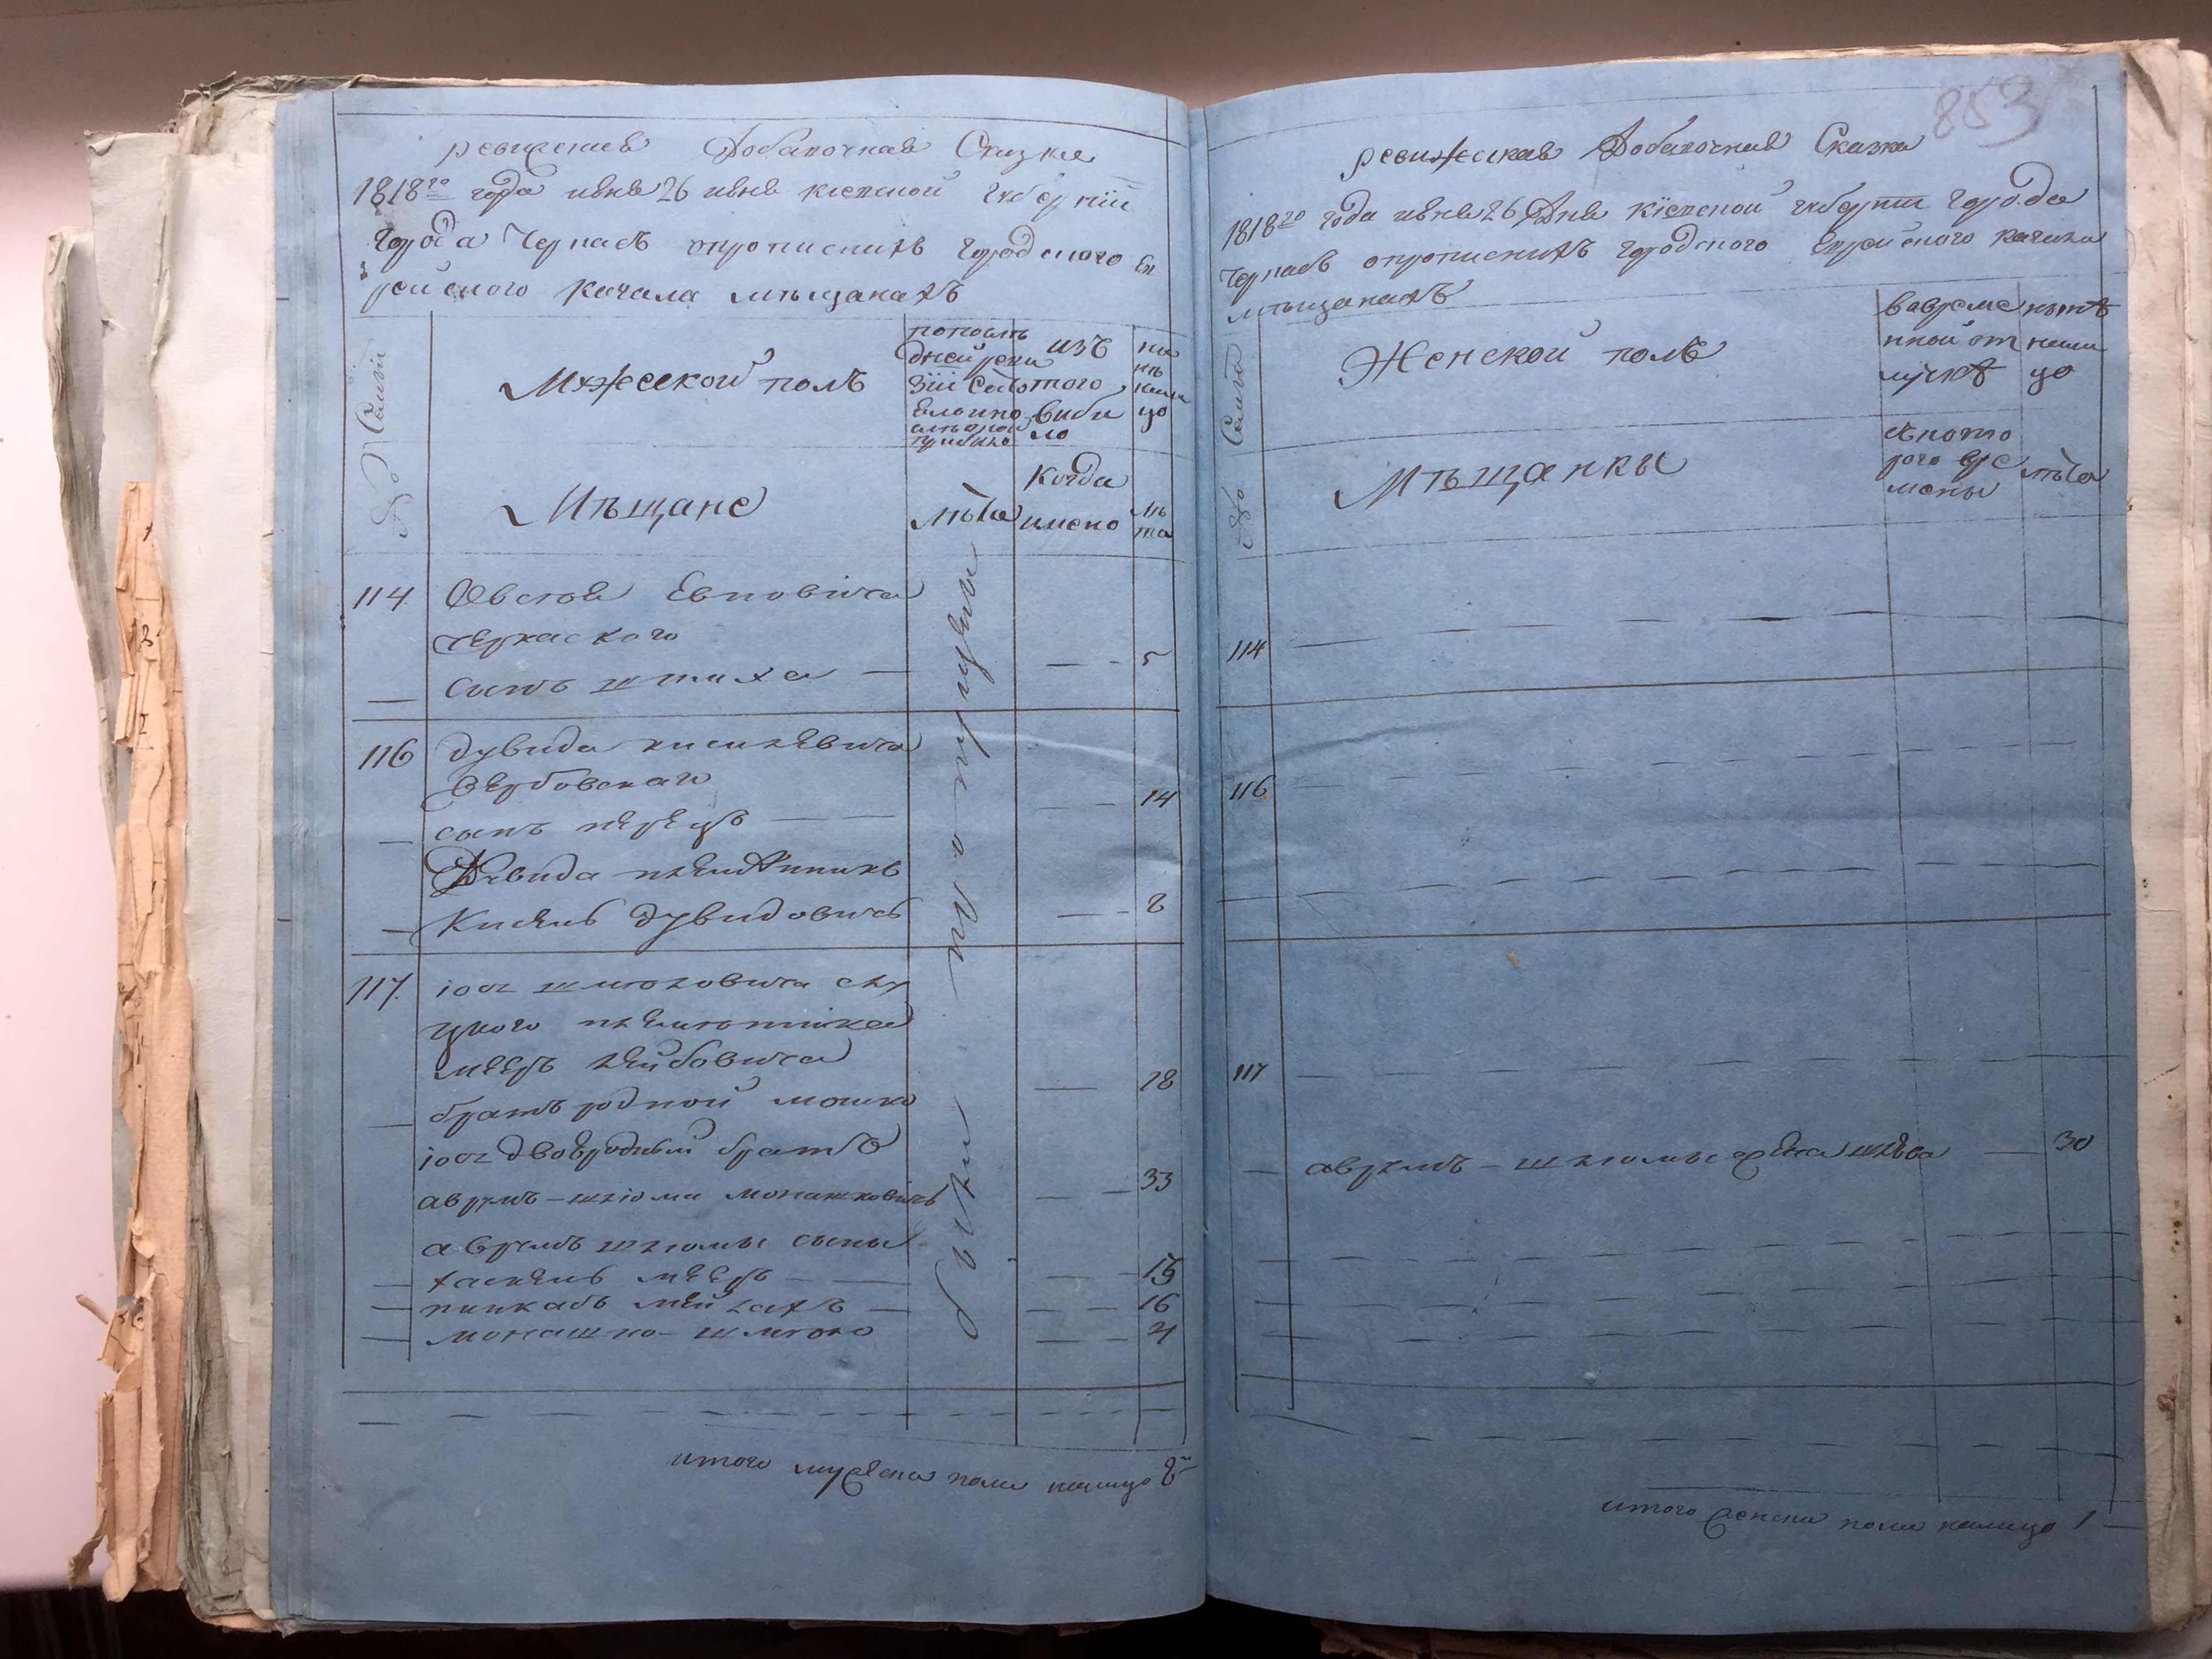 ревижская Добавочная Сказка
1818го года июня 26 июня Кіевской губерніи
города Черкасъ опрописнихъ городского Ев
рейского кагала мѣщанахъ
№ Семей
Мужеской полъ
по последней ревизіи состояло
изъ того выбыло
ныне налицо
Мѣщане
лѣта
когда имено
лѣта
114
Овсея Евновича
черкаского
сынъ
5
116
дувида киселевича
Вербовскаго
14
сынъ перецъ
Дувида племянникъ
Кисель дувидовичъ
8
117
іося шмюловича слу
цкого племянника
меера лейбовича
18
братъ родной мошко
іося двоюродный братъ
аврумъ-шлюма монашковичъ
33
аврумъ шлюмы сыны
хаскель мееръ
15
пинкасъ мейлахъ
16
монашко-шмюло
4
были пропущены
итого мужеска пола налицо 8
853
ревижская Добавочная Сказка
1818го года июня 26 Дня Кіевской губерніи города
Черкасъ опрописнихъ городского Еврейского кагала
мѣщанахъ
№ Семей
Женской полъ
во временной отлучке
ныне налицо
Мѣщанки
с которого времени
лѣта
114
116
117
аврумъ-шлюмы жена
30
итого женска пола налицо 1